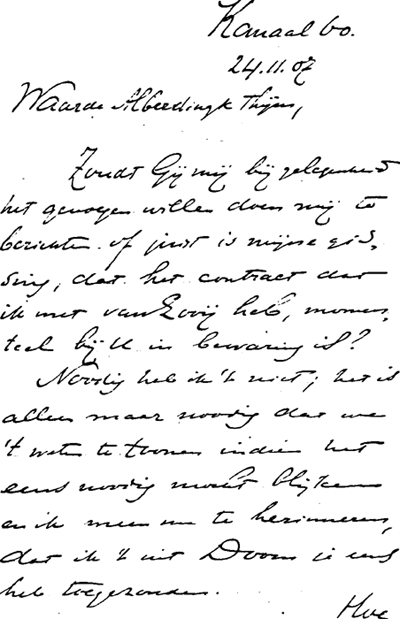 Kanaal 60.
24.11.07
Waarde Alberdingk Thijm,
Zoudt Gij mij bij gelegenheid
het genoegen willen doen mij te
berichten of juist is mijne gis,
sing, dat het contract dat
ik met van Looij heb, momen,
teel bij U in bewaring is?
Noodig heb ik 't niet; het is
alleen maar noodig dat we
't weten te toonen indien het
eens noodig mocht blijken
en ik meen me te herinneren,
dat ik 't uit Doorn je eens
heb toegezonden.
Hoe